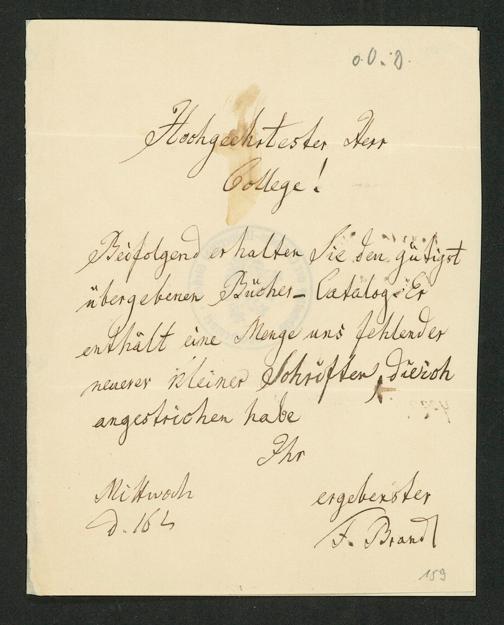 o.O.D.
Hochgeehrtester Herr
College!
Beifolgend erhalten Sie den gütigst
übergebenen Bücher-Catalog. Er
enthält eine Menge uns fehlender
neuerer kleiner Schriften, die ich
angestrichen habe
Ihr
Mittwoch
d. 16t
ergebenster
F. Brandt
159